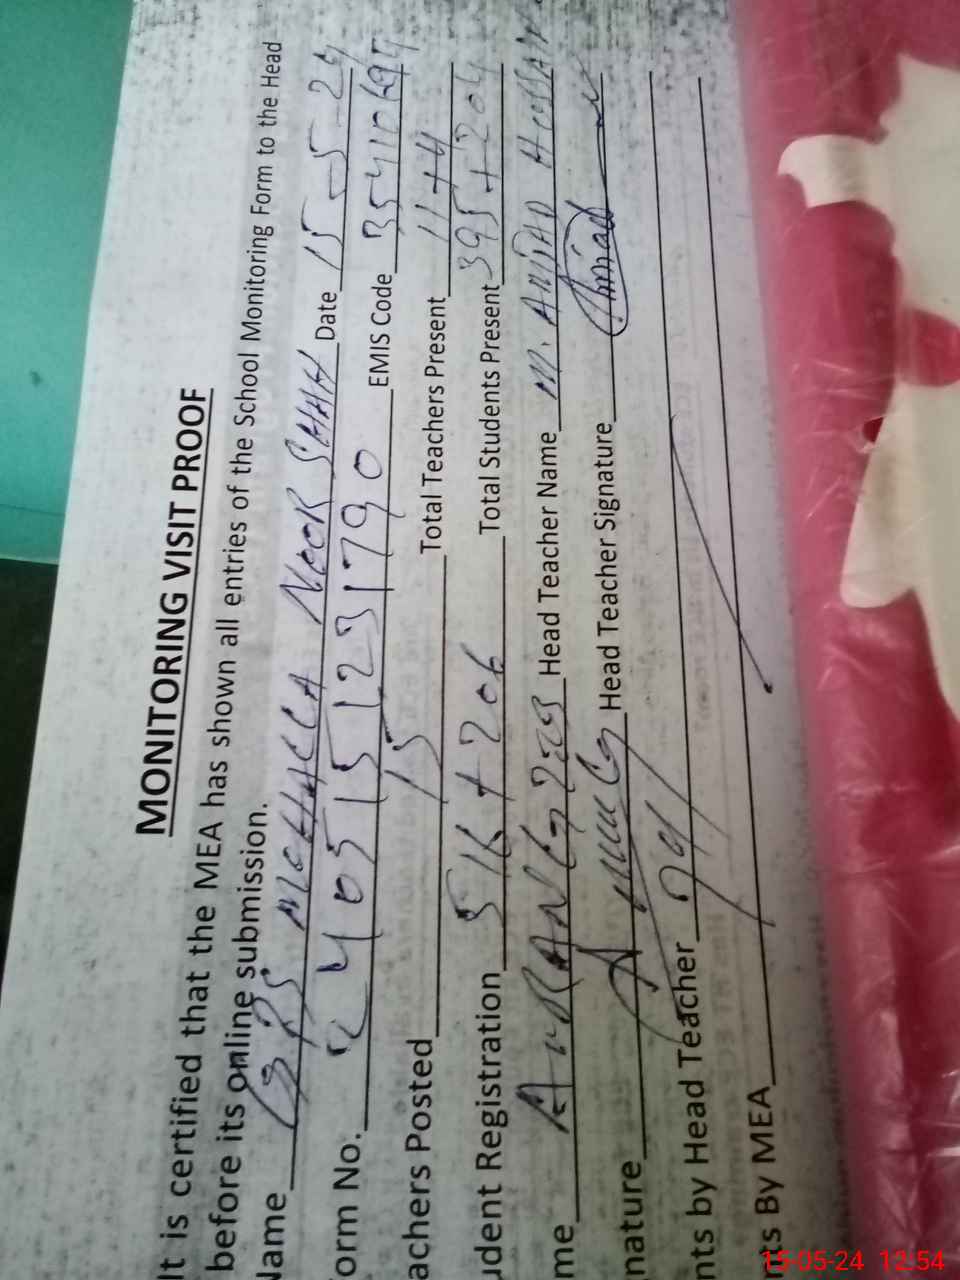 MONITORING VISIT PROOF
It is certified that the MEA has shown all entries of the School Monitoring Form to the Head
before its online submission.
Name GPS MOHALLA NOOR SHAH Date 15-5-24
orm No. 2405151231790 EMIS Code 35410697
achers Posted 15 Total Teachers Present 11+4
udent Registration 516+206 Total Students Present 395+204
me AURANG Head Teacher Name M. AMJAD HUSSAIN
nature Head Teacher Signature Amjad
nts by Head Teacher
nts By MEA
15-05-24 12:54